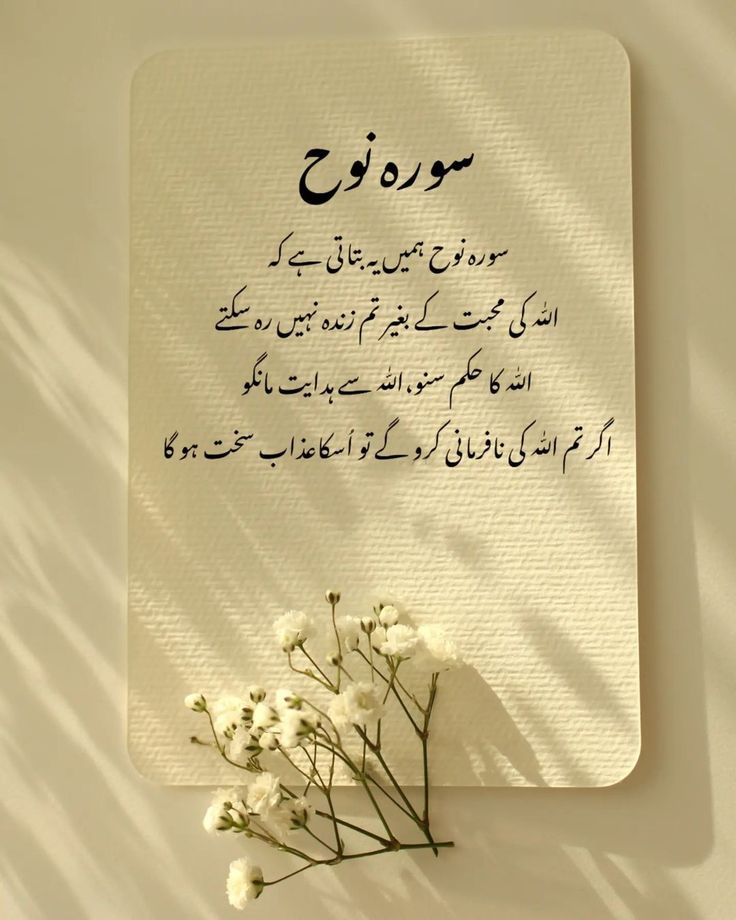 سورہ نوح
سورہ نوح ہمیں یہ بتاتی ہے کہ
اللہ کی محبت کے بغیر تم زندہ نہیں رہ سکتے
اللہ کا حکم سنو، اللہ سے ہدایت مانگو
اگر تم اللہ کی نافرمانی کرو گے تو اُسکا عذاب سخت ہو گا